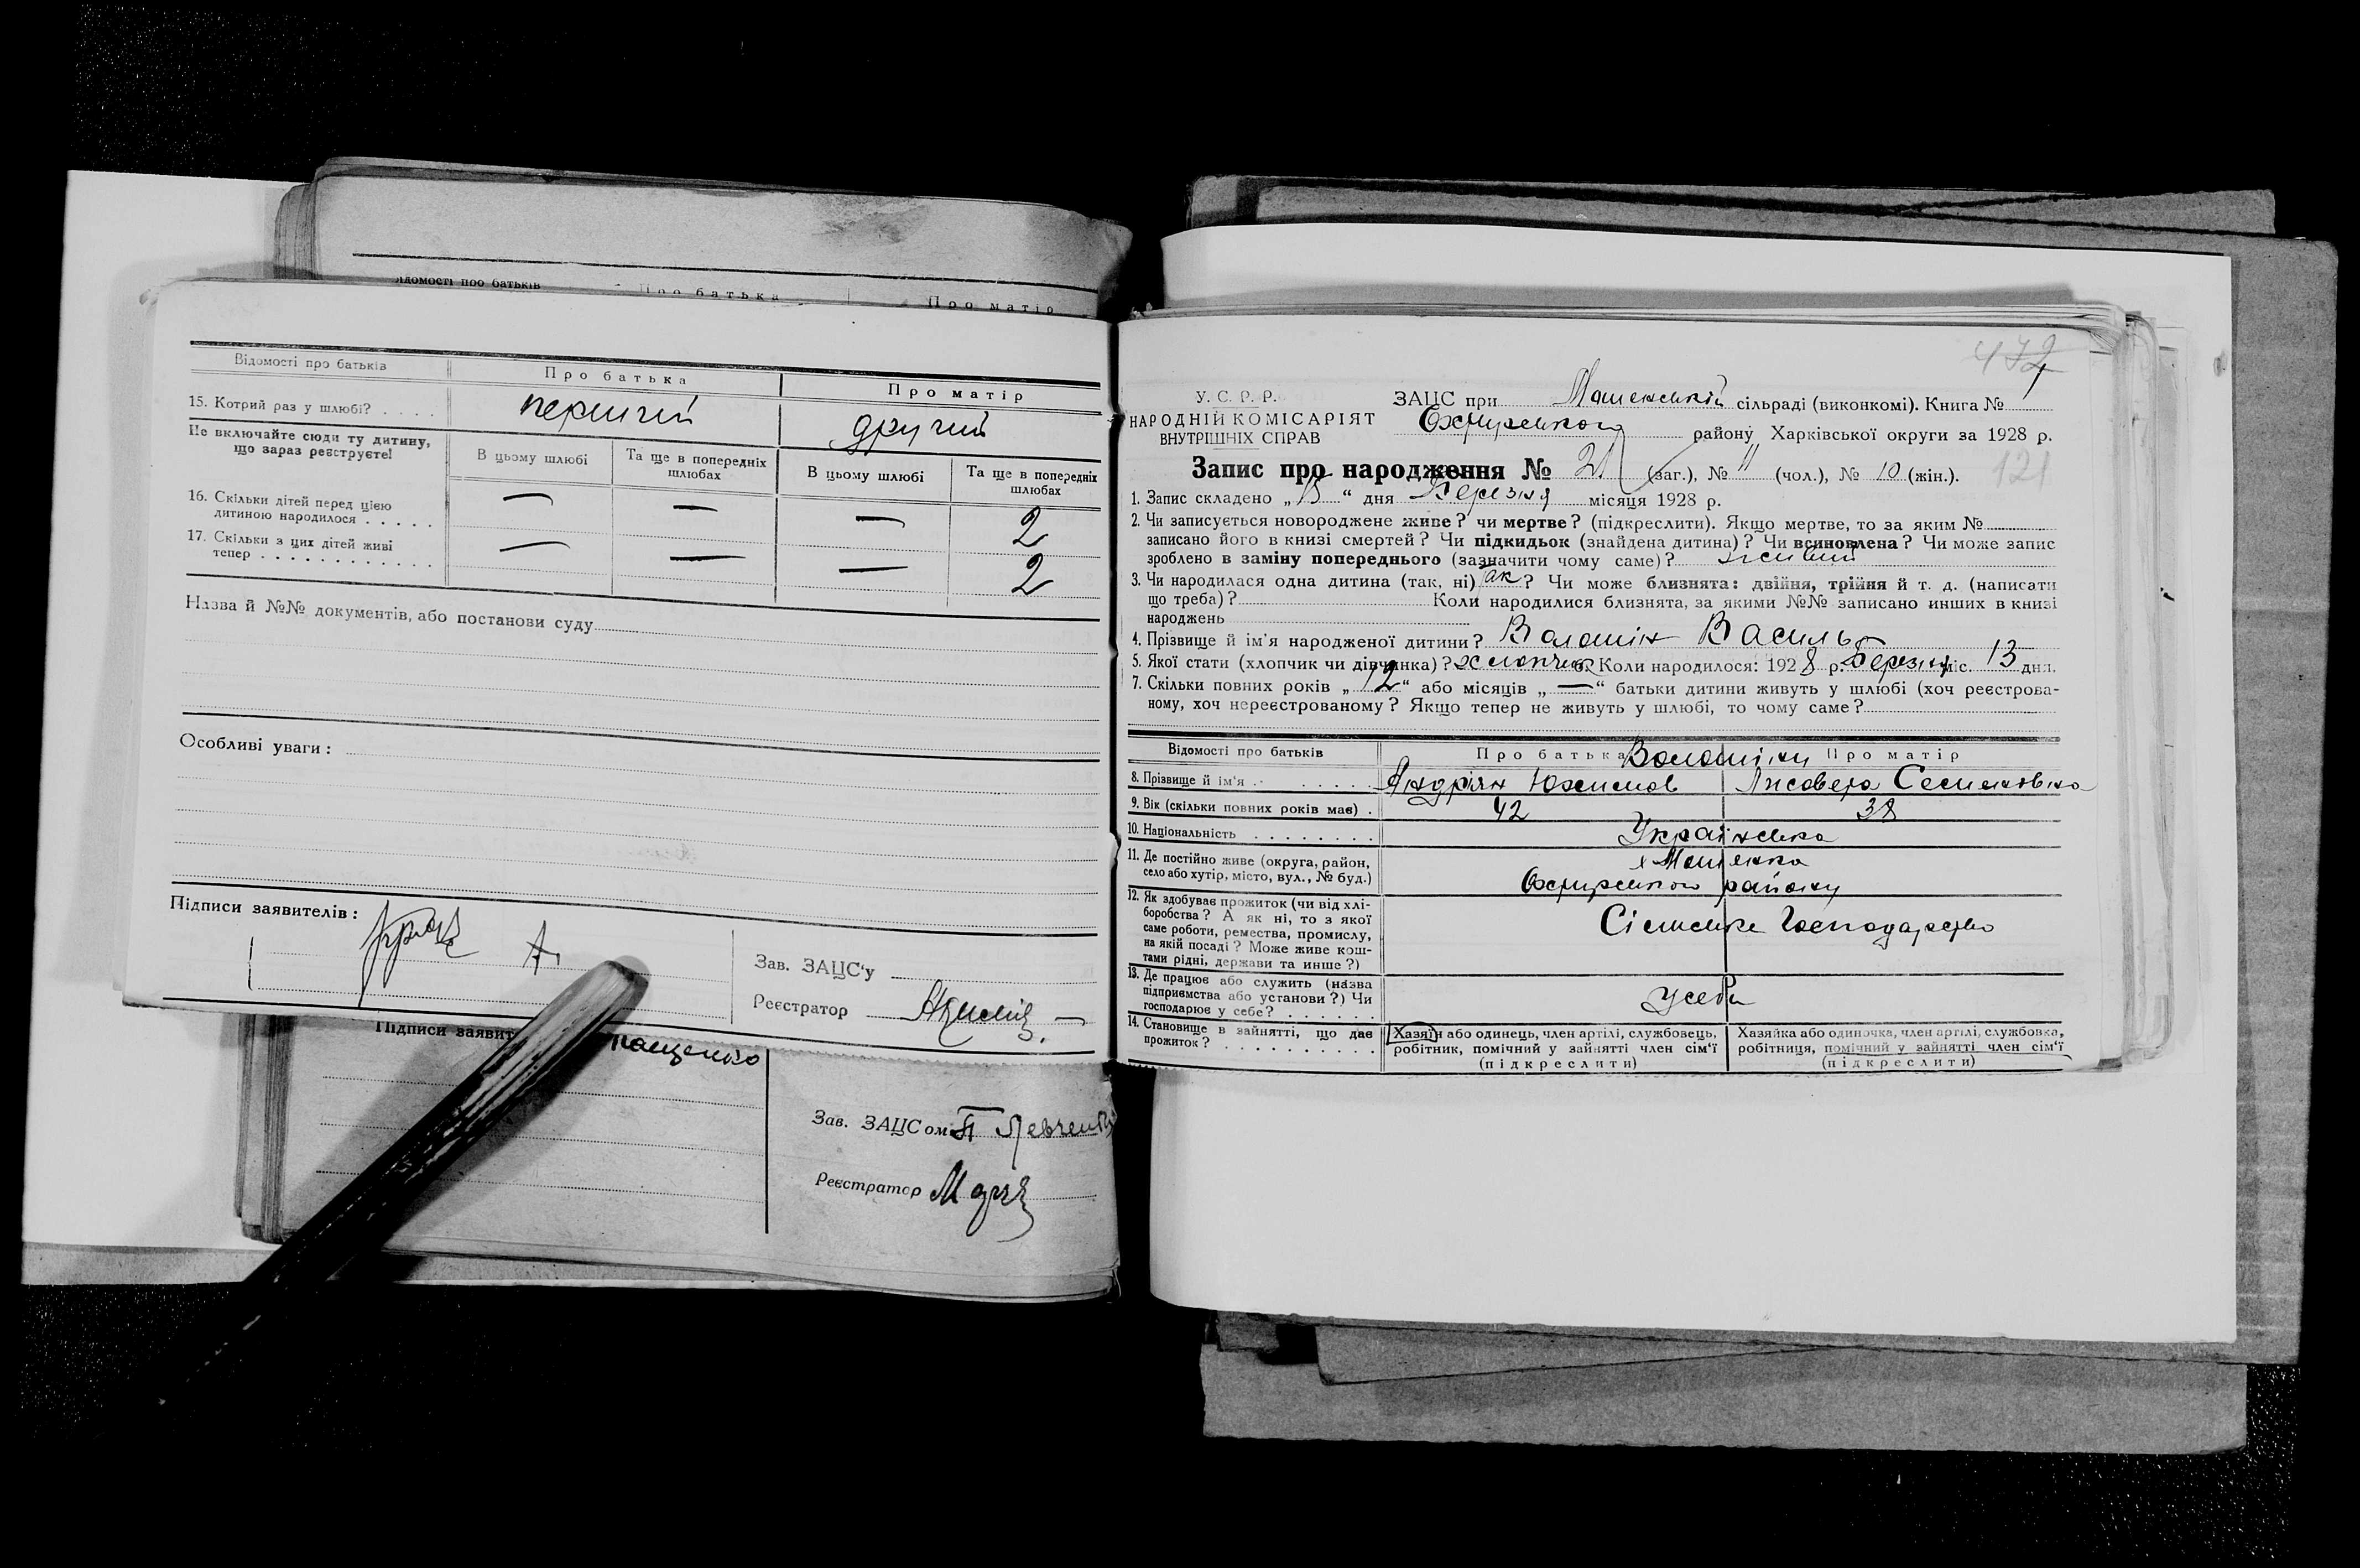 ідомості про батьків Про батька Про матір
Відомості про батьків Про батька Про матір
15. Котрий раз у шлюбі? . . . . перший другий
Не включайте сюди ту дитину, що зараз реєструєте!
В цьому шлюбі Та ще в попередніх шлюбах В цьому шлюбі Та ще в попередніх шлюбах
16. Скільки дітей перед цією
дитиною народилося . . . . . — — — 2
17. Скільки з цих дітей живі
тепер . . . . . . . . . . . . — — — 2
Назва й №№ документів, або постанови суду
Особливі уваги:
Підписи заявителів:
Зав. ЗАЦС'у
Реєстратор
Підписи заявит
Зав. ЗАЦСом П Левченко
Реєстратор
472
У. С. Р. Р.
НАРОДНІЙ КОМІСАРІЯТ
ВНУТРІШНІХ СПРАВ
ЗАЦС при Мошенській сільраді (виконкомі). Книга № 1
Охтирського району Харківської округи за 1928 р.
Запис про народження № 21 (заг.), № 11 (чол.), № 10 (жін.).
121
1. Запис складено „ “ дня Березня місяця 1928 р.
2. Чи записується новороджене живе? чи мертве? (підкреслити). Якщо мертве, то за яким №
записано його в книзі смертей? Чи підкидьок (знайдена дитина)? Чи всиновлена? Чи може запис
зроблено в заміну попереднього (зазначити чому саме)? живий
3. Чи народилася одна дитина (так, ні) так? Чи може близнята: двійня, трійня й т. д. (написати
що треба)? Коли народилися близнята, за якими №№ записано инших в книзі
народжень
4. Прізвище й ім'я народженої дитини? Волошін Василь
5. Якої стати (хлопчик чи дівчинка)? хлопчик 6. Коли народилося: 1928 р. Березня міс. 13 дня.
7. Скільки повних років „12“ або місяців „—“ батьки дитини живуть у шлюбі (хоч реєстрова-
ному, хоч нереєстрованому? Якщо тепер не живуть у шлюбі, то чому саме?
Відомості про батьків Про батька Про матір
Волошіни
8. Прізвище й ім'я . . . . . . . Андріян Юхимов Лисавета Семеновна
9. Вік (скільки повних років має) . 42 38
10. Національність . . . . . . . . Українська
11. Де постійно живе (округа, район,
село або хутір, місто, вул., № буд.)
х Мошенка
Охтирського району
12. Як здобуває прожиток (чи від хлі-
боробства? А як ні, то з якої
саме роботи, ремества, промислу,
на якій посаді? Може живе кош-
тами рідні, держави та инше?)
Сільське Господарство
13. Де працює або служить (назва
підприємства або установи?) Чи
господарює у себе? . . . . . .
усебе
14. Становище в зайнятті, що дає
прожиток? . . . . . . . . . .
Хазяїн або одинець, член артілі, службовець,
робітник, помічний у зайнятті член сім'ї
(підкреслити)
Хазяйка або одиночка, член артілі, службовка,
робітниця, помічний у зайнятті член сім'ї
(підкреслити)